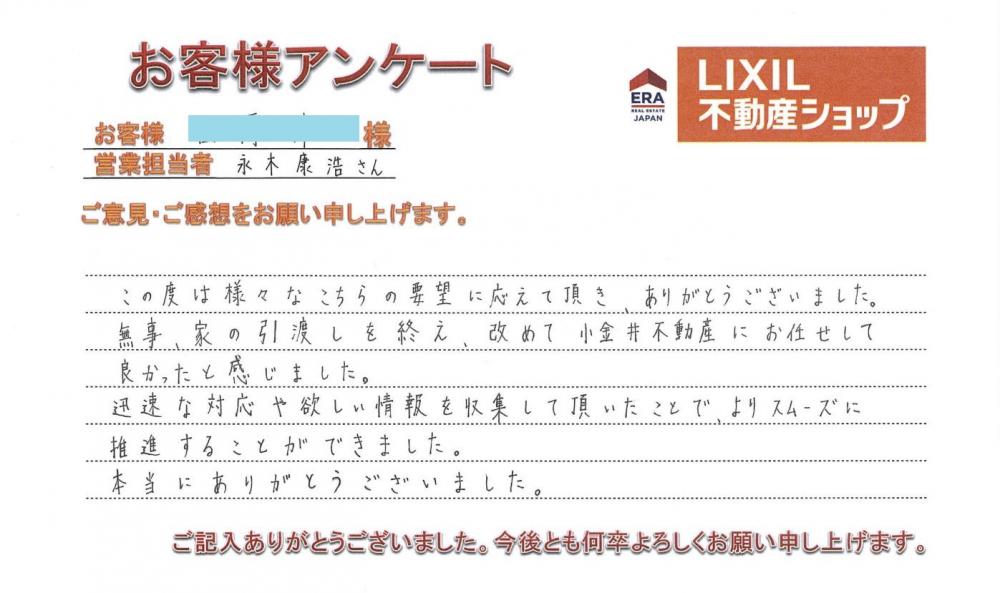 お客様アンケート
ERA
REAL ESTATE
JAPAN
LIXIL
不動産ショップ
お客様 様
営業担当者 永木康浩さん
ご意見・ご感想をお願い申し上げます。
この度は様々なこちらの要望に応えて頂き、ありがとうございました。
無事、家の引渡しを終え、改めて小金井不動産にお任せして
良かったと感じました。
迅速な対応や欲しい情報を収集して頂いたことで、よりスムーズに
推進することができました。
本当にありがとうございました。
ご記入ありがとうございました。今後とも何卒よろしくお願い申し上げます。